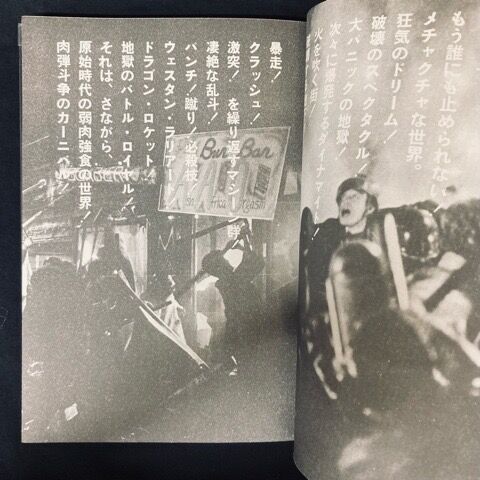 もう誰にも止められない!
メチャクチャな世界。
狂気のドリーム!
破壊のスペクタクル!
大パニックの地獄!
次々に爆発するダイナマイト!
火を吹く街!
暴走!
クラッシュ!
激突! を繰り返すマシーン群
凄絶な乱斗!
パンチ!蹴り!必殺技!
ウェスタン・ラリアート!
ドラゴン・ロケット!
地獄のバトル・ロイヤル!
それは、さながら、
原始時代の弱肉強食の世界!
肉弾斗争のカーニバル!
Bar